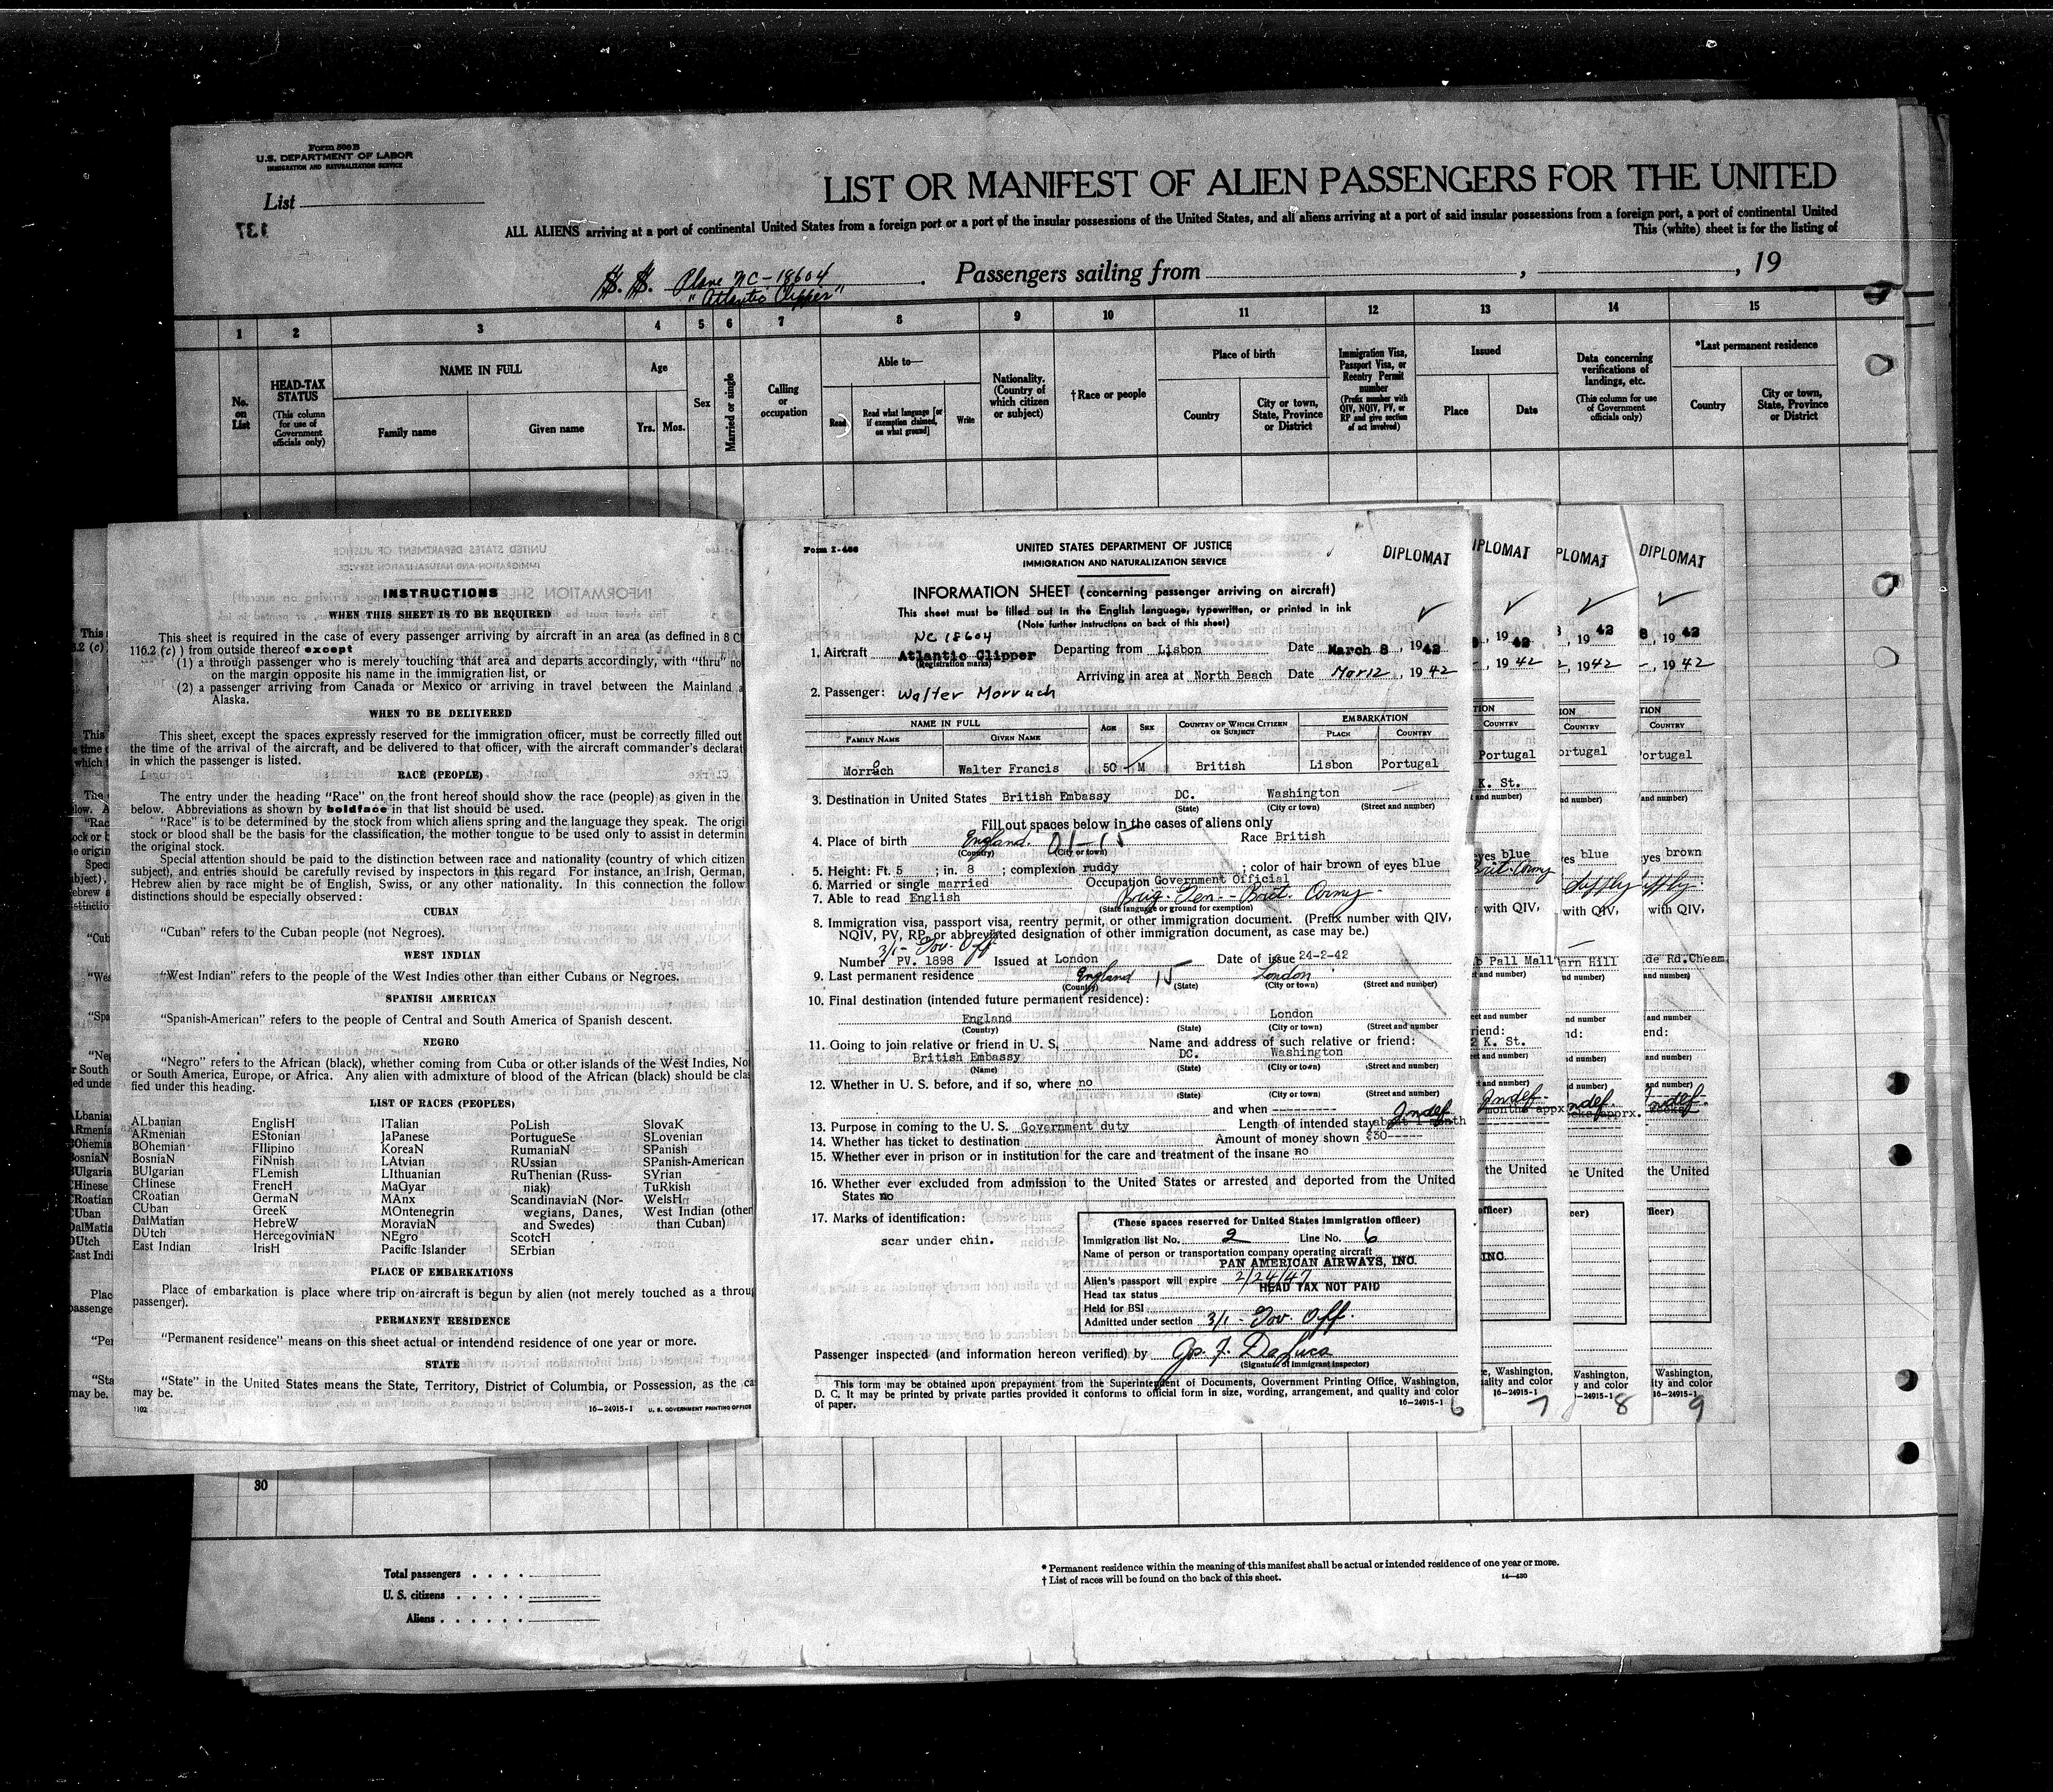 Form 500 B
U.S. DEPARTMENT OF LABOR
IMMIGRATION AND NATURALIZATION SERVICE
List
137
LIST OR MANIFEST OF ALIEN PASSENGERS FOR THE UNITED
ALL ALIENS arriving at a port of continental United States from a foreign port or a port of the insular possessions of the United States, and all aliens arriving at a port of said insular possessions from a foreign port, a port of continental United
This (white) sheet is for the listing of
S. S. Plane NC-18604
"Atlantic Clipper"
Passengers sailing from , , 19
1 2 3 4 5 6 7 8 9 10 11 12 13 14 15
No. on List
HEAD-TAX STATUS
(This column for use of Government officials only)
NAME IN FULL
Family name
Given name
Age
Yrs. Mos.
Sex
Married or single
Calling or occupation
Able to—
Read
Read what language [or if exemption claimed, on what ground]
Write
Nationality. (Country of which citizen or subject)
†Race or people
Place of birth
Country
City or town, State, Province or District
Immigration Visa, Passport Visa, or Reentry Permit number
(Prefix number with QIV, NQIV, PV, or RP and give section of act involved)
Issued
Place
Date
Data concerning verifications of landings, etc.
(This column for use of Government officials only)
*Last permanent residence
Country
City or town, State, Province or District
INSTRUCTIONS
WHEN THIS SHEET IS TO BE REQUIRED
This sheet is required in the case of every passenger arriving by aircraft in an area (as defined in 8 C
116.2 (c) ) from outside thereof except
(1) a through passenger who is merely touching that area and departs accordingly, with "thru" no
on the margin opposite his name in the immigration list, or
(2) a passenger arriving from Canada or Mexico or arriving in travel between the Mainland a
Alaska.
WHEN TO BE DELIVERED
This sheet, except the spaces expressly reserved for the immigration officer, must be correctly filled out
the time of the arrival of the aircraft, and be delivered to that officer, with the aircraft commander's declarat
in which the passenger is listed.
RACE (PEOPLE)
The entry under the heading "Race" on the front hereof should show the race (people) as given in the
below. Abbreviations as shown by boldface in that list should be used.
"Race" is to be determined by the stock from which aliens spring and the language they speak. The origi
stock or blood shall be the basis for the classification, the mother tongue to be used only to assist in determin
the original stock.
Special attention should be paid to the distinction between race and nationality (country of which citizen
subject), and entries should be carefully revised by inspectors in this regard For instance, an Irish, German,
Hebrew alien by race might be of English, Swiss, or any other nationality. In this connection the follow
distinctions should be especially observed:
CUBAN
"Cuban" refers to the Cuban people (not Negroes).
WEST INDIAN
"West Indian" refers to the people of the West Indies other than either Cubans or Negroes.
SPANISH AMERICAN
"Spanish-American" refers to the people of Central and South America of Spanish descent.
NEGRO
"Negro" refers to the African (black), whether coming from Cuba or other islands of the West Indies, No
or South America, Europe, or Africa. Any alien with admixture of blood of the African (black) should be cla
fied under this heading.
LIST OF RACES (PEOPLES)
ALbanian EnglisH ITalian PoLish SlovaK
ARmenian EStonian JaPanese PortugueSe SLovenian
BOhemian FIlipino KoreaN RumaniaN SPanish
BosniaN FiNnish LAtvian RUssian SPanish-American
BUlgarian FLemish LIthuanian RuThenian (Russ- SYrian
CHinese FrencH MaGyar niak) TuRkish
CRoatian GermaN MAnx ScandinaviaN (Nor- WelsH
CUban GreeK MOntenegrin wegians, Danes, West Indian (other
DalMatian HebreW MoraviaN and Swedes) than Cuban)
DUtch HercegoviniaN NEgro ScotcH
East Indian IrisH Pacific Islander SErbian
PLACE OF EMBARKATIONS
Place of embarkation is place where trip on aircraft is begun by alien (not merely touched as a throu
passenger).
PERMANENT RESIDENCE
"Permanent residence" means on this sheet actual or intendend residence of one year or more.
STATE
"State" in the United States means the State, Territory, District of Columbia, or Possession, as the ca
may be.
1102 16—24915-1 U. S. GOVERNMENT PRINTING OFFICE
Form I-466
UNITED STATES DEPARTMENT OF JUSTICE
IMMIGRATION AND NATURALIZATION SERVICE
DIPLOMAT
INFORMATION SHEET (concerning passenger arriving on aircraft)
This sheet must be filled out in the English language, typewritten, or printed in ink
(Note further instructions on back of this sheet)
NC 18604
1. Aircraft Atlantic Clipper Departing from Lisbon Date March 8, 1942
(Registration marks)
Arriving in area at North Beach Date Mar 12, 1942
2. Passenger: Walter Morrach
NAME IN FULL AGE SEX COUNTRY OF WHICH CITIZEN OR SUBJECT EMBARKATION
FAMILY NAME GIVEN NAME PLACE COUNTRY
Morrach Walter Francis 50 M British Lisbon Portugal
3. Destination in United States British Embassy DC. Washington
(State) (City or town) (Street and number)
Fill out spaces below in the cases of aliens only
4. Place of birth England. Race British
(Country) (City or town)
5. Height: Ft. 5 ; in. 8 ; complexion ruddy ; color of hair brown of eyes blue
6. Married or single married Occupation Government Official
7. Able to read English Brig. Gen. - Brit. Army -
(State language or ground for exemption)
8. Immigration visa, passport visa, reentry permit, or other immigration document. (Prefix number with QIV,
NQIV, PV, RP, or abbreviated designation of other immigration document, as case may be.)
3/1 - Gov. Off.
Number PV. 1898 Issued at London Date of issue 24-2-42
9. Last permanent residence England 15 London
(Country) (State) (City or town) (Street and number)
10. Final destination (intended future permanent residence):
England London
(Country) (State) (City or town) (Street and number
11. Going to join relative or friend in U. S. Name and address of such relative or friend:
British Embassy DC. Washington
(Name) (State) (City or town) (Street and number)
12. Whether in U. S. before, and if so, where no
(State) (City or town) (Street and number)
and when ---------- Indef
13. Purpose in coming to the U. S. Government duty Length of intended stay about 1 month
14. Whether has ticket to destination Amount of money shown £50-----
15. Whether ever in prison or in institution for the care and treatment of the insane no
16. Whether ever excluded from admission to the United States or arrested and deported from the United
States no
17. Marks of identification:
scar under chin.
(These spaces reserved for United States immigration officer)
Immigration list No. 2 Line No. 6
Name of person or transportation company operating aircraft
PAN AMERICAN AIRWAYS, INC.
Alien's passport will expire 2/24/47
Head tax status HEAD TAX NOT PAID
Held for BSI
Admitted under section 3/1 - Gov. Off.
Passenger inspected (and information hereon verified) by Jos. F. DeLuca
(Signature of immigrant inspector)
This form may be obtained upon prepayment from the Superintendent of Documents, Government Printing Office, Washington,
D. C. It may be printed by private parties provided it conforms to official form in size, wording, arrangement, and quality and color
of paper. 16—24915-1
6
7
8
9
30
Total passengers
U. S. citizens
Aliens
* Permanent residence within the meaning of this manifest shall be actual or intended residence of one year or more.
† List of races will be found on the back of this sheet.
14—430